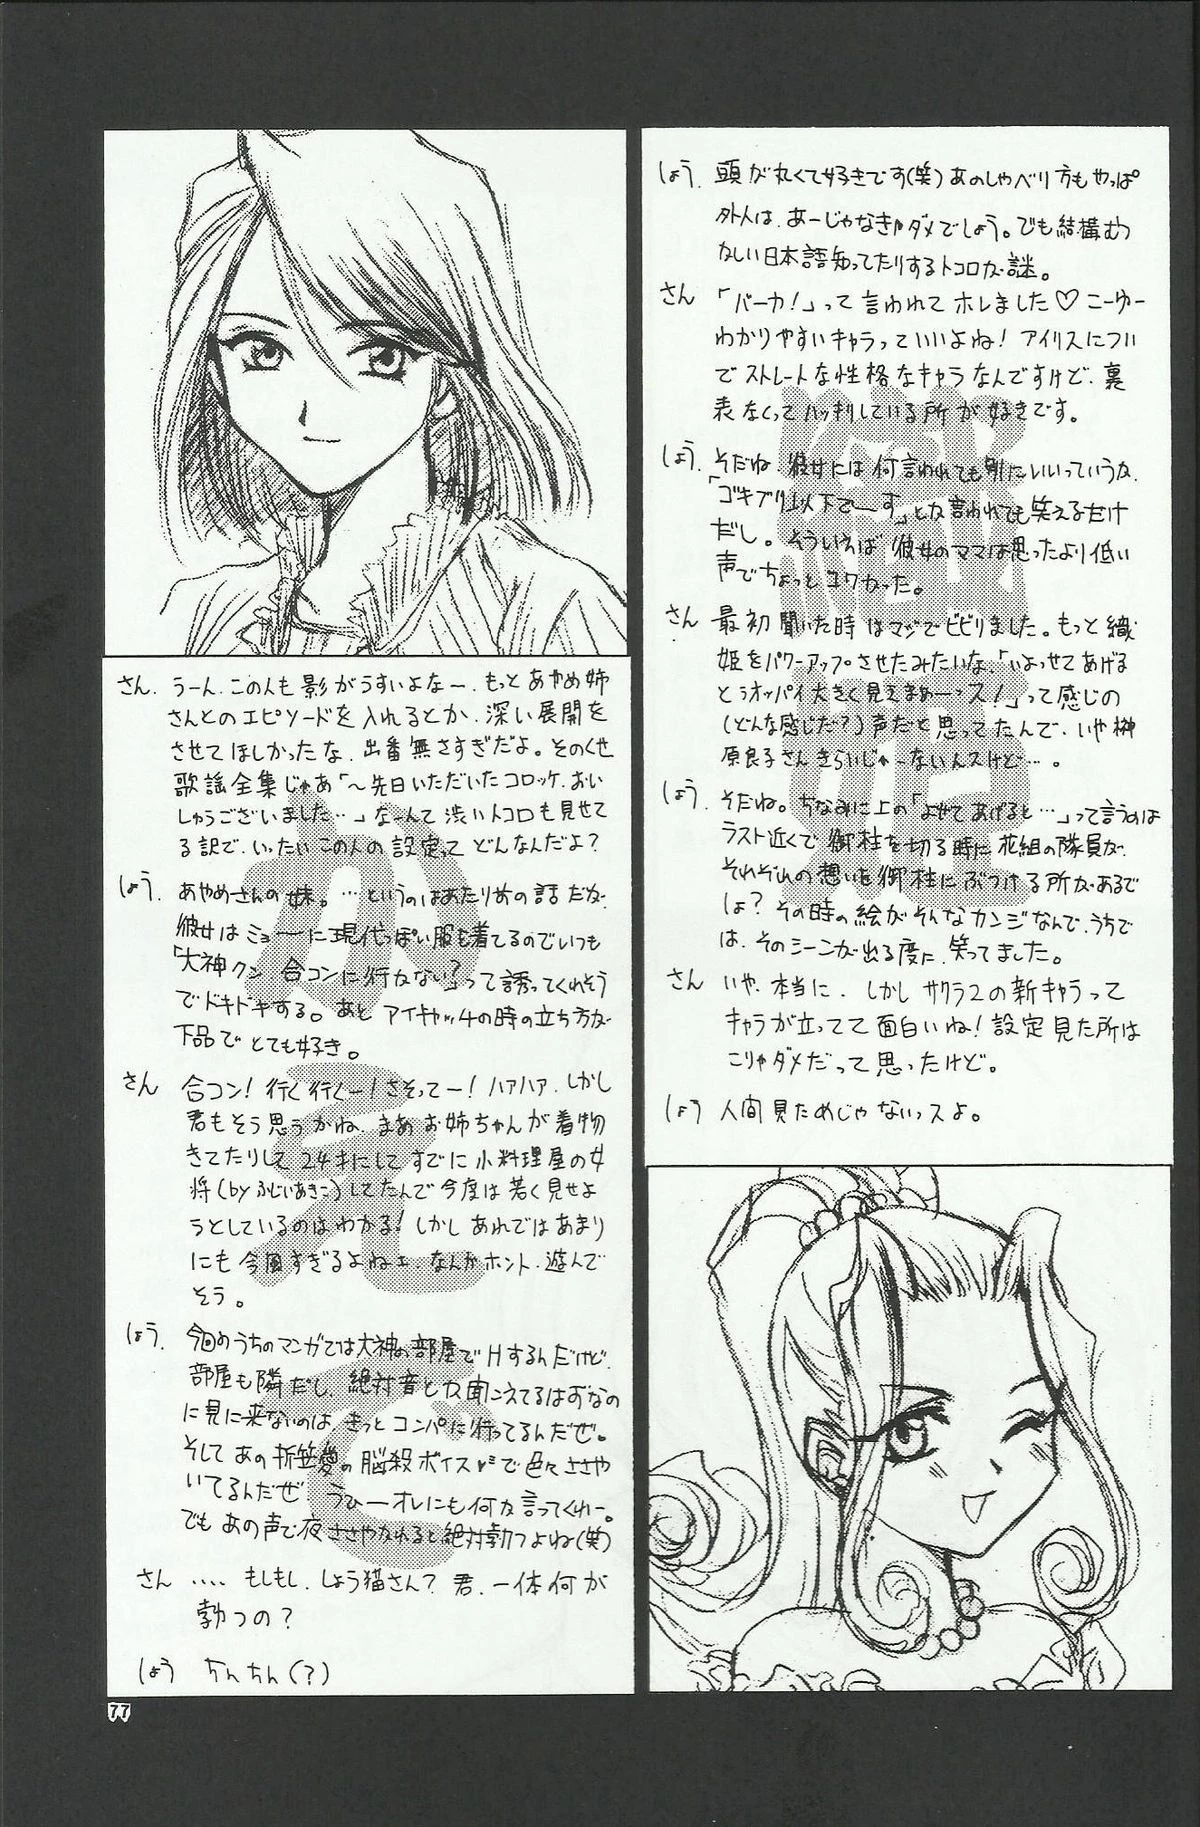 しょう. 頭が丸くて好きです(笑)あのしゃべり方もやっぱ
外人は、あーじゃなきゃダメでしょう。でも結構むつ
かしい日本語知ってたりするトコロが謎。
さん 「バーカ!」って言われてホレました♡こーゆー
わかりやすいキャラっていいよね! アイリスについ
でストレートな性格なキャラなんですけど、裏
表なくってハッキリしている所が好きです。
しょう. そだね、彼女には何言われても別にいいっていうか、
「ゴキブリ以下でーす」とか言われても笑えるだけ
だし。そういえば彼女のママは思ったより低い
声でちょっとコワかった。
さん 最初聞いた時はマジでビビりました。もっと織
姫をパワーアップさせたみたいな、「いよっせてあげる
とぅオッパイ大きく見えまぁーっス!」って感じの
(どんな感じだ?)声だと思ってたんで、いや榊
原良子さんきらいじゃーないんスけど…。
しょう. そだね。ちなみに上の「よせてあげると…」って言うのは
ラスト近くで御柱を切る時に花組の隊員が、
それぞれの想いを御柱にぶつける所があるで
しょ? その時の絵がそんなカンジなんで、うちで
は、そのシーンが出る度に、笑ってました。
さん いや、本当に、しかしサクラ2の新キャラって
キャラが立ってて面白いね! 設定見た所は
こりゃダメだって思ったけど。
しょう 人間見ためじゃないっスよ。
さん. うーん、この人も影がうすいよなー、もっとあやめ姉
さんとのエピソードを入れるとか、深い展開を
させてほしかったな、出番無さすぎだよ。そのくせ
歌謡全集じゃあ「〜先日いただいたコロッケ、おい
しゅうございました…」なーんて渋いトコロも見せて
る訳で、いったいこの人の設定って どんなんだよ?
しょう. あやめさんの妹。…というのはあたり前の話だが、
彼女はミョーに現代っぽい服を着てるのでいつも
「大神クン 合コンに行かない?」って誘ってくれそう
でドキドキする。あと アイキャッチの時の立ち方が
下品で とても好き。
さん 合コン! 行く行くー! さそってー! ハァハァ、しかし
君もそう思うかね、まあお姉ちゃんが着物
きてたりして24才にしてすでに小料理屋の女
将(byふじいあきこ)してたんで今度は若く見せよ
うとしているのはわかる! しかしあれではあまり
にも今風すぎるよねェ、なんかホント、遊んで
そう。
しょう. 今回のうちのマンガでは大神の部屋でHするんだけど、
部屋も隣だし、絶対音とか聞こえてるはずなの
に見に来ないのは、きっとコンパに行ってるんだぜ。
そして あの 折笠愛の脳殺ボイスで色々ささや
いてるんだぜ うひーオレにも何か言ってくれー。
でもあの声で夜ささやかれると絶対勃つよね(笑)
さん ‥‥もしもし、しょう猫さん? 君、一体何が
勃つの?
しょう ちんちん(?)
77
かえで
織姫